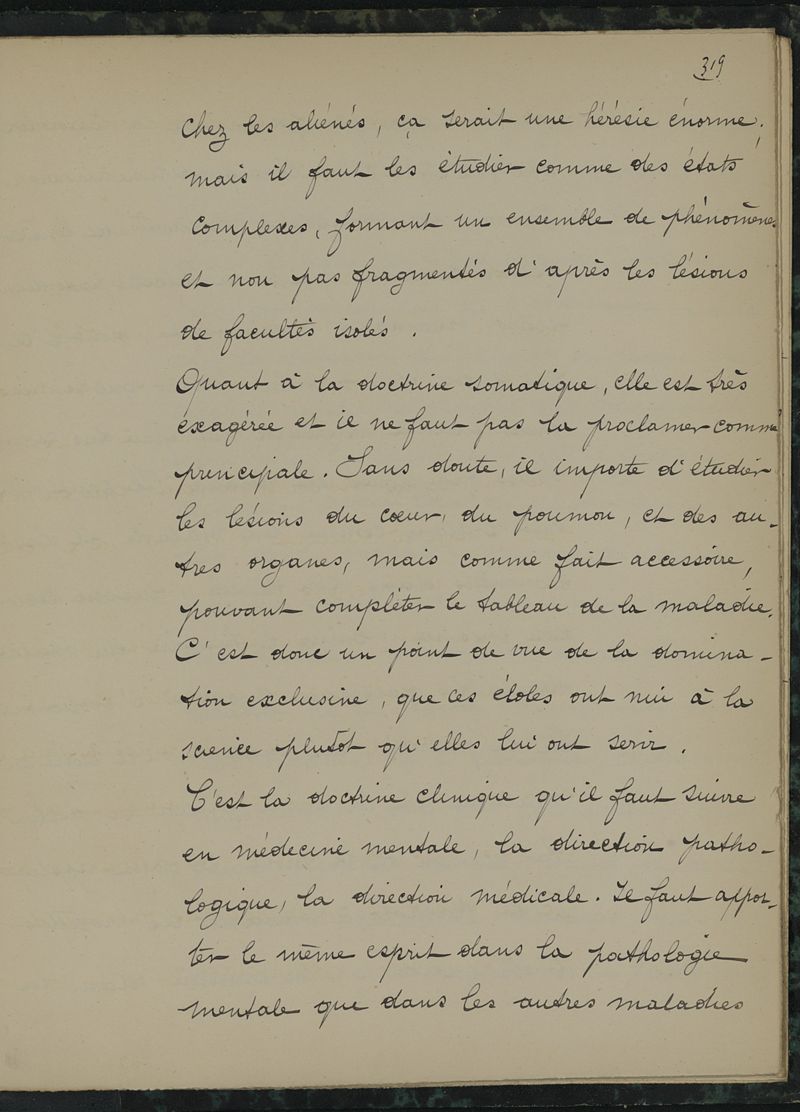 319
Chez les aliénés, ça serait une hérésie énorme;
mais il faut les étudier comme des états
complexes, formant un ensemble de phénomènes
et non pas fragmentés d'après les lésions
de facultés isolés.
Quant à la doctrine somatique, elle est très
exagérée et il ne faut pas la proclamer comme
principale. Sans doute, il importe d'étudier
les lésions du cœur, du poumon, et des au-
tres organes, mais comme fait accessoire,
pouvant compléter le tableau de la maladie.
C'est donc un point de vue de la domina-
tion exclusine, que ces éloles ont nui à la
science plutôt qu'elles lui ont serir.
C'est la doctrine clinique qu'il faut suivre
en médecine mentale, la direction patho-
logique, la direction médicale. Il faut appor-
ter le même esprit dans la pathologie
mentale que dans les autres maladies